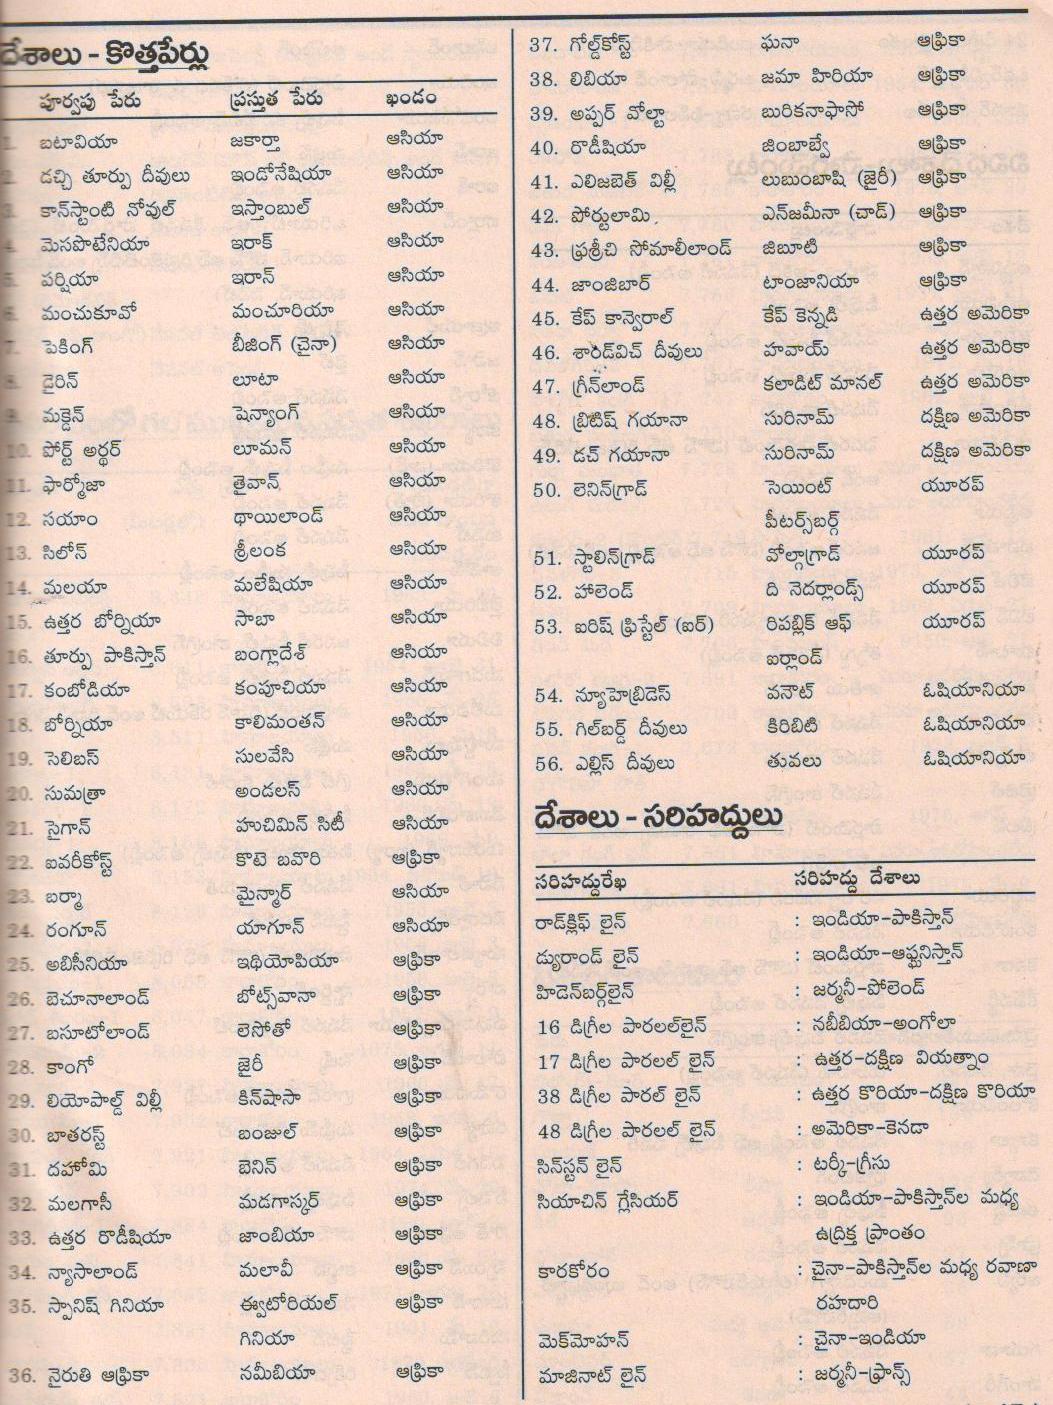 దేశాలు - కొత్తపేర్లు
పూర్వపు పేరు ప్రస్తుత పేరు ఖండం
1. బటావియా జకార్తా ఆసియా
2. డచ్చి తూర్పు దీవులు ఇండోనేషియా ఆసియా
3. కాన్‌స్టాంటి నోవుల్ ఇస్తాంబుల్ ఆసియా
4. మెసపొటేనియా ఇరాక్ ఆసియా
5. పర్షియా ఇరాన్ ఆసియా
6. మంచుకూవో మంచూరియా ఆసియా
7. పెకింగ్ బీజింగ్ (చైనా) ఆసియా
8. డైరిన్ లూటా ఆసియా
9. మక్డెన్ షెన్యాంగ్ ఆసియా
10. పోర్ట్ అర్థర్ లూమన్ ఆసియా
11. ఫార్మోజా తైవాన్ ఆసియా
12. సయాం థాయిలాండ్ ఆసియా
13. సిలోన్ శ్రీలంక ఆసియా
14. మలయా మలేషియా ఆసియా
15. ఉత్తర బోర్నియా సాబా ఆసియా
16. తూర్పు పాకిస్తాన్ బంగ్లాదేశ్ ఆసియా
17. కంబోడియా కంపూచియా ఆసియా
18. బోర్నియా కాలిమంతన్ ఆసియా
19. సెలిబస్ సులవేసి ఆసియా
20. సుమత్రా అండలస్ ఆసియా
21. సైగాన్ హుచిమిన్ సిటీ ఆసియా
22. ఐవరీకోస్ట్ కొటె బవొరి ఆఫ్రికా
23. బర్మా మైన్మార్ ఆసియా
24. రంగూన్ యాగూన్ ఆసియా
25. అబిసీనియా ఇథియోపియా ఆఫ్రికా
26. బెచూనాలాండ్ బోట్స్‌వానా ఆఫ్రికా
27. బసూటోలాండ్ లెసోతో ఆఫ్రికా
28. కాంగో జైరీ ఆఫ్రికా
29. లియోపాల్డ్ విల్లీ కిన్‌షాసా ఆఫ్రికా
30. బాతరస్ట్ బంజుల్ ఆఫ్రికా
31. దహోమి బెనిన్ ఆఫ్రికా
32. మలగాసీ మడగాస్కర్ ఆఫ్రికా
33. ఉత్తర రొడీషియా జాంబియా ఆఫ్రికా
34. న్యాసాలాండ్ మలావీ ఆఫ్రికా
35. స్పానిష్ గినియా ఈ్వటోరియల్ ఆఫ్రికా
గినియా
36. నైరుతి ఆఫ్రికా నమీబియా ఆఫ్రికా
37. గోల్డ్‌కోస్ట్ ఘనా ఆఫ్రికా
38. లిబియా జమా హిరియా ఆఫ్రికా
39. అప్పర్ వోల్టా బురికనాఫాసో ఆఫ్రికా
40. రొడీషియా జింబాబ్వే ఆఫ్రికా
41. ఎలిజబెత్ విల్లీ లుబుంబాషి (జైరీ) ఆఫ్రికా
42. పోర్టులామి ఎన్‌జమీనా (చాడ్) ఆఫ్రికా
43. ఫ్రశ్రీచి సోమాలీలాండ్ జిబూటి ఆఫ్రికా
44. జాంజిబార్ టాంజానియా ఆఫ్రికా
45. కేప్ కాన్వెరాల్ కేప్ కెన్నడి ఉత్తర అమెరికా
46. శాండ్‌విచ్ దీవులు హవాయ్ ఉత్తర అమెరికా
47. గ్రీన్‌లాండ్ కలాడిట్ మానల్ ఉత్తర అమెరికా
48. బ్రిటిష్ గయానా సురినామ్ దక్షిణ అమెరికా
49. డచ్ గయానా సురినామ్ దక్షిణ అమెరికా
50. లెనిన్‌గ్రాడ్ సెయింట్ యూరప్
పీటర్స్‌బర్గ్
51. స్టాలిన్‌గ్రాడ్ వోల్గాగ్రాడ్ యూరప్
52. హాలెండ్ ది నెదర్లాండ్స్ యూరప్
53. ఐరిష్ ఫ్రిస్టేల్ (ఐర్) రిపబ్లిక్ ఆఫ్ యూరప్
ఐర్లాండ్
54. న్యూహెబ్రిడెస్ వనౌట్ ఓషియానియా
55. గిల్‌బర్డ్ దీవులు కిరిబిటి ఓషియానియా
56. ఎల్లిస్ దీవులు తువలు ఓషియానియా
దేశాలు - సరిహద్దులు
సరిహద్దురేఖ సరిహద్దు దేశాలు
రాడ్‌క్లిఫ్ లైన్ : ఇండియా-పాకిస్తాన్
డ్యురాండ్ లైన్ : ఇండియా-ఆఫ్ఘనిస్తాన్
హిడెన్‌బర్గ్‌లైన్ : జర్మనీ-పోలెండ్
16 డిగ్రీల పారలల్‌లైన్ : నబీబియా-అంగోలా
17 డిగ్రీల పారలల్ లైన్ : ఉత్తర-దక్షిణ వియత్నాం
38 డిగ్రీల పారల్ లైన్ : ఉత్తర కొరియా-దక్షిణ కొరియా
48 డిగ్రీల పారలల్ లైన్ : అమెరికా-కెనడా
సిన్‌స్టన్ లైన్ : టర్కీ-గ్రీసు
సియాచిన్ గ్లేసియర్ : ఇండియా-పాకిస్తాన్‌ల మధ్య
ఉద్రిక్త ప్రాంతం
కారకోరం : చైనా-పాకిస్తాన్‌ల మధ్య రవాణా
రహదారి
మెక్‌మోహన్ : చైనా-ఇండియా
మాజినాట్ లైన్ : జర్మనీ-ఫ్రాన్స్